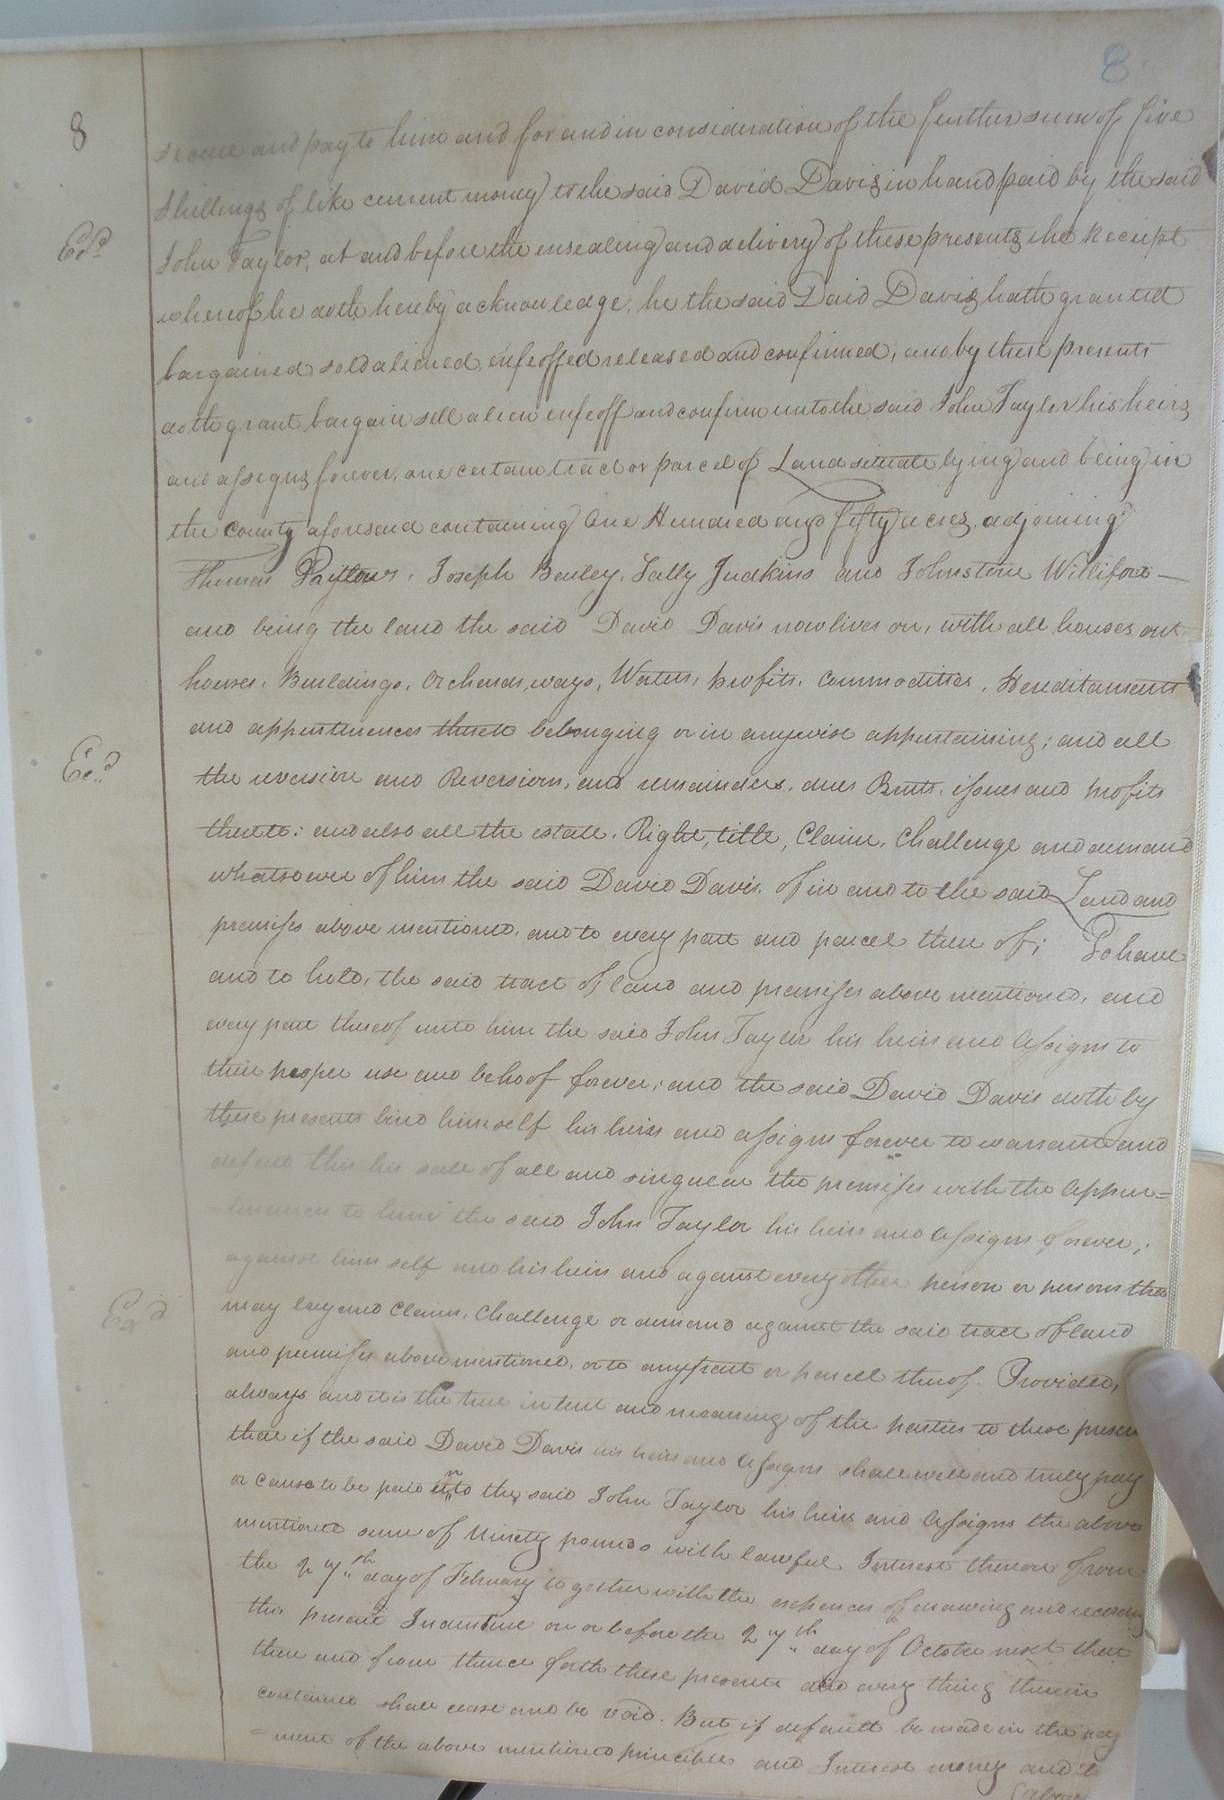 8
8
secure and pay to him and for and in consideration of the further sum of five
shillings of like current money to the said David Davis in hand paid by the said
Exd
John Taylor, at and before the ensealing and delivery of these presents the Receipt
whereof he doth hereby acknowledge, he the said Daid Davis hath granted
bargained sold aliened enfeoffed released and confirmed, and by these presents
doth grant bargain sell alien enfeoff and confirm unto the said John Taylor his heirs
and assigns forever, one certain tract or parcel of Land situate lying and being in
the county aforesaid containing One Hundred and fifty acres, adjoining
Joseph Sally Judkins and Johnstone Williford—
and being the land the said David Davis now lives on, with all houses out
houses, Buildings, Orchards, ways, Waters, profits, Commodities, Hereditaments
and appurtenences thereto belonging or in anywise appurtaining; and all
Exd
the revision and Reversions, and remainders, dues Rents, issues and profits
thereto: and also all the estate, Right, title, Claim, Challenge and demand
whatsoever of him the said David Davis. of in and to the said Land and
premises above mentioned, and to every part and parcel there of; To have
and to hold, the said tract of land and premises above mentioned, and
every part thereof unto him the said John Taylor his heirs and Assigns to
their proper use and behoof forever, and the said David Davis doth by
these presents bind himself his heirs and assigns forever to warrant and
defend this his sale of all and singular the premises with the Appur=
=tenances to him the said John Taylor his heirs and Assigns forever,
against him self and his heirs and against every other person or persons that
Exd
may lay and Claim, Challenge or demand against the said tract of land
and premises above mentioned, or to any part or parcel thereof. Provided,
always and it is the true intent and meaning of the parties to these presen
that if the said David Davis his heirs and Assigns shall well and truly pay
or cause to be paid unto the said John Taylor his heirs and Assigns the above
mentioned sum of Ninety pounds with lawful Interest thereon from
the 27th day of February together with the expences of drawing and recording
this present Indenture on or before the 27th day of October next that
then and from thence forth these presents and every thing therein
contained shall cease and be void. But if default be made in the pay
=ment of the above mentioned principle and Interest money and